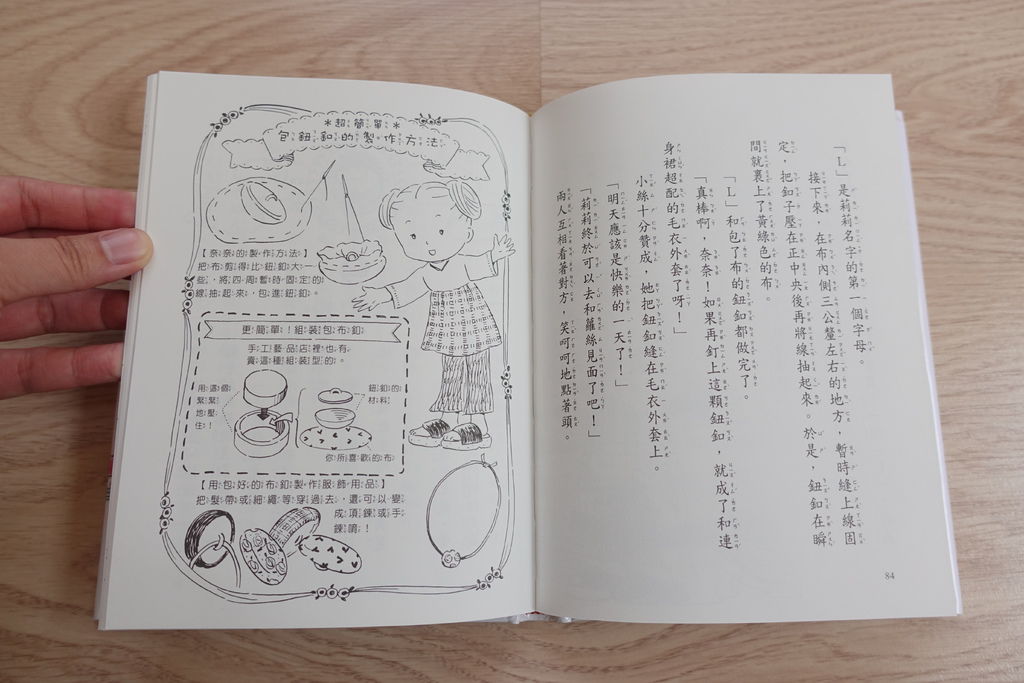 「L」是莉莉名字的第一個字母。
接下來，在布內側三公釐左右的地方，暫時縫上線固
定，把釦子壓在正中央後再將線抽起來。於是，鈕釦在瞬
間就裹上了黃綠色的布。
「L」和包了布的鈕釦都做完了。
「真棒啊，奈奈！如果再釘上這顆鈕釦，就成了和連
身裙超配的毛衣外套了呀！」
小絲十分贊成，她把鈕釦縫在毛衣外套上。
「明天應該是快樂的一天了！」
「莉莉終於可以去和蘿絲見面了吧！」
兩人互相看著對方，笑呵呵地點著頭。
84
＊超簡單＊
包鈕釦的製作方法
【奈奈的製作方法】
把布剪得比鈕釦大一
些，將四周暫時固定的
線抽起來，包進鈕釦。
更簡單！組裝包布釦
手工藝品店裡也有
賣這種組裝型的。
用這個
緊緊
地壓
住！
鈕釦的
材料
你所喜歡的布
【用包好的布釦製作服飾用品】
把髮帶或細繩等穿過去，還可以變
成項鍊或手
鍊唷！